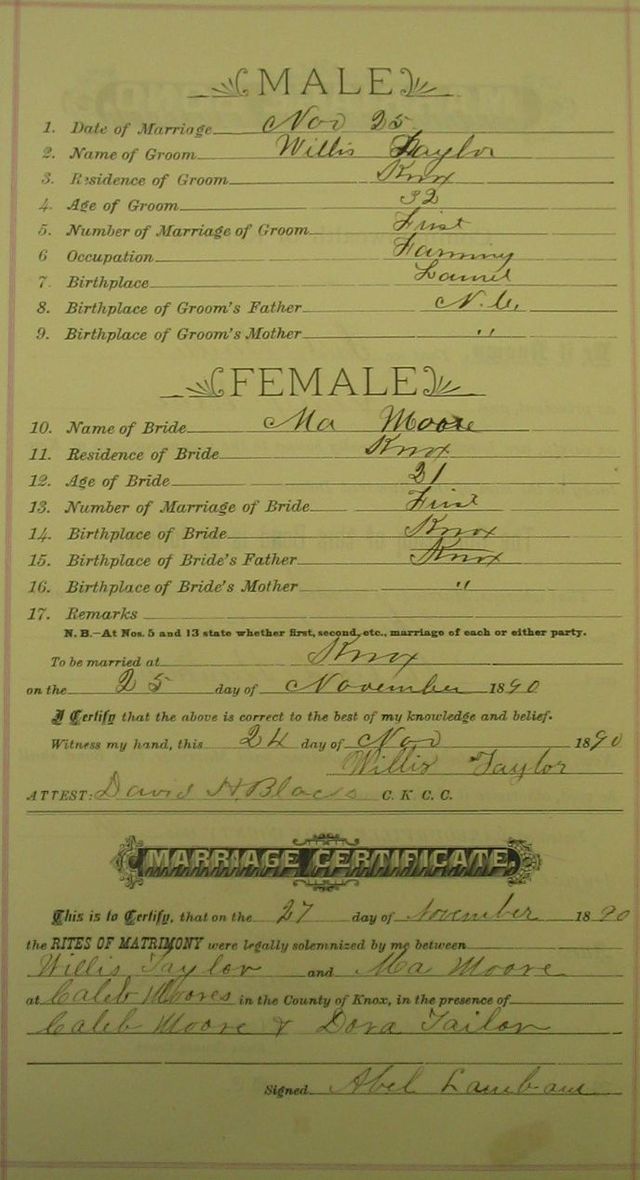 MALE
1. Date of Marriage Nov 25
2. Name of Groom Willis Taylor
3. Residence of Groom Knox
4. Age of Groom 32
5. Number of Marriage of Groom First
6 Occupation Farming
7. Birthplace Laurel
8. Birthplace of Groom's Father N. C.
9. Birthplace of Groom's Mother "
FEMALE
10. Name of Bride Ma Moore
11. Residence of Bride Knox
12. Age of Bride 21
13. Number of Marriage of Bride First
14. Birthplace of Bride Knox
15. Birthplace of Bride's Father Knox
16. Birthplace of Bride's Mother "
17. Remarks
N. B.—At Nos. 5 and 13 state whether first, second, etc., marriage of each or either party.
To be married at Knox
on the 25 day of November 1890
I Certify that the above is correct to the best of my knowledge and belief.
Witness my hand, this 24 day of Nov 1890
Willis Taylor
ATTEST: David H Black C. K. C. C.
MARRIAGE CERTIFICATE.
This is to Certify, that on the 27 day of November 1890
the RITES OF MATRIMONY were legally solemnized by me between
Willis Taylor and Ma Moore
at Caleb Moores in the County of Knox, in the presence of
Caleb Moore & Dora Tailor
Signed Abel